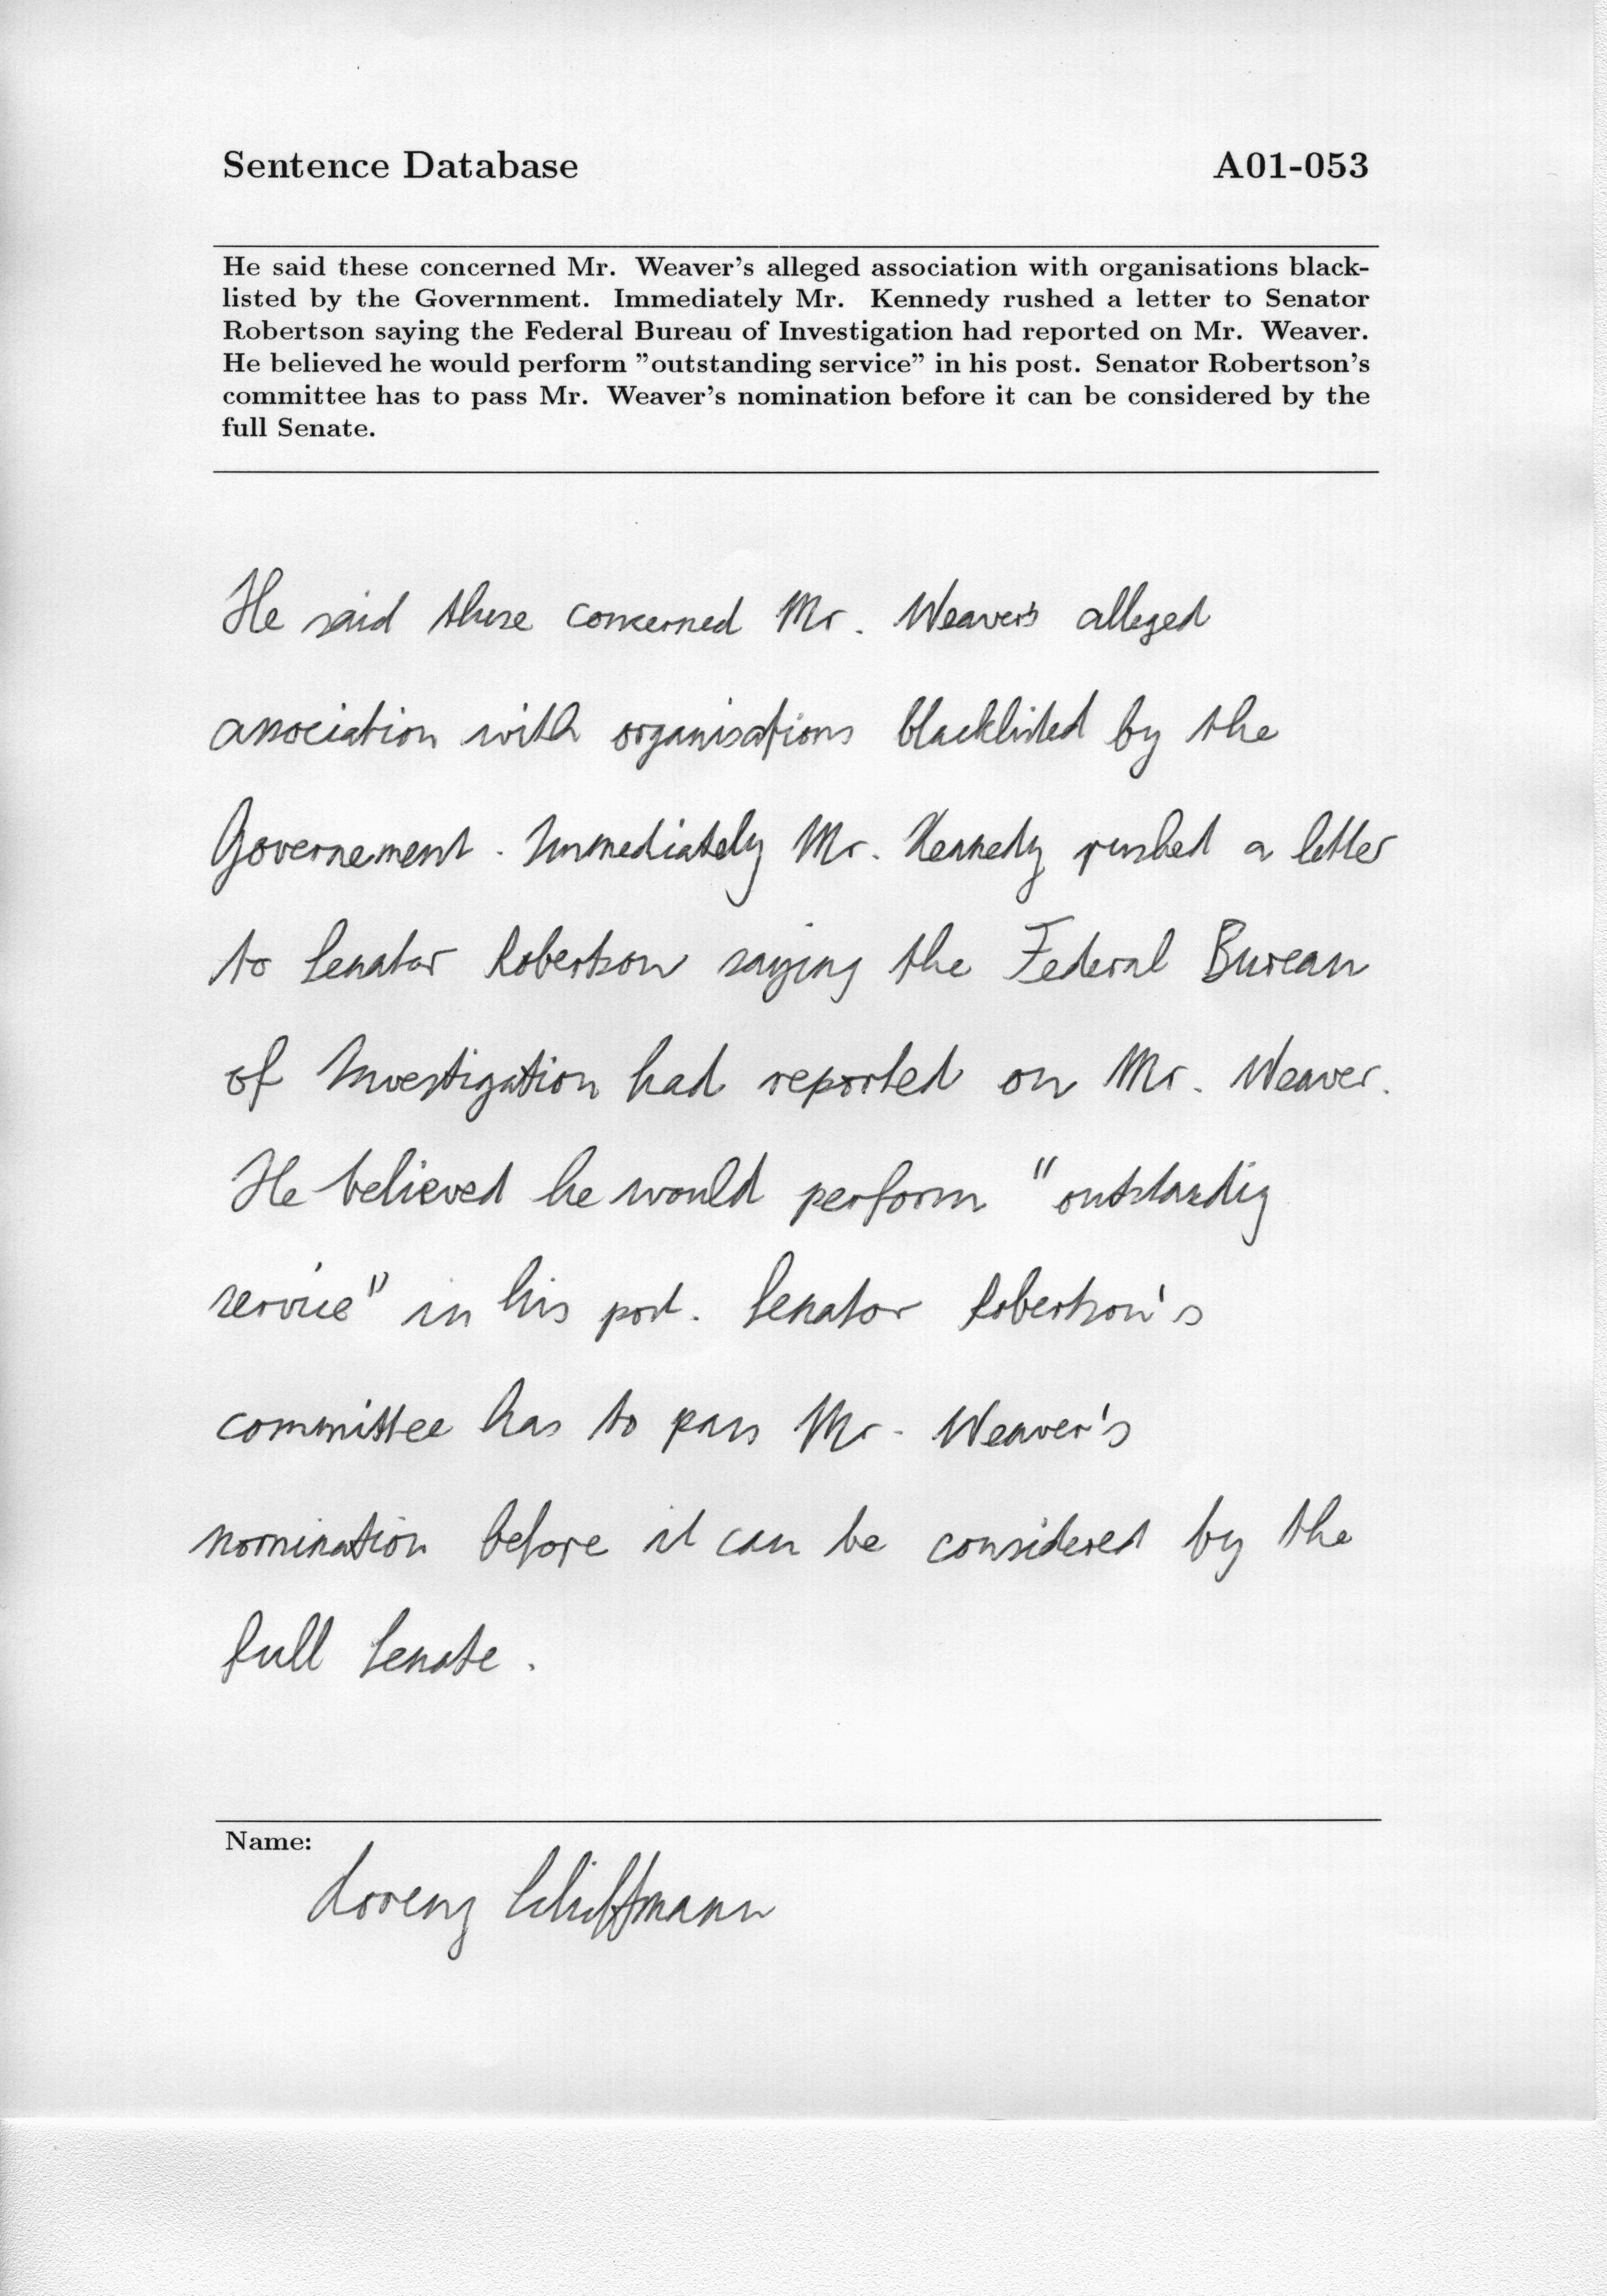 Sentence Database A01-053
He said these concerned Mr. Weaver's alleged association with organisations black-
listed by the Government. Immediately Mr. Kennedy rushed a letter to Senator
Robertson saying the Federal Bureau of Investigation had reported on Mr. Weaver.
He believed he would perform "outstanding service" in his post. Senator Robertson's
committee has to pass Mr. Weaver's nomination before it can be considered by the
full Senate.
He said these concerned Mr. Weaver's alleged
association with organisations blacklisted by the
Governement. Immediately Mr. Kennedy rushed a letter
to Senator Robertson saying the Federal Bureau
of Investigation had reported on Mr. Weaver.
He believed he would perform "outstandig
service" in his post. Senator Robertson's
committee has to pass Mr. Weaver's
nomination before it can be considered by the
full Senate.
Name:
Lorenz